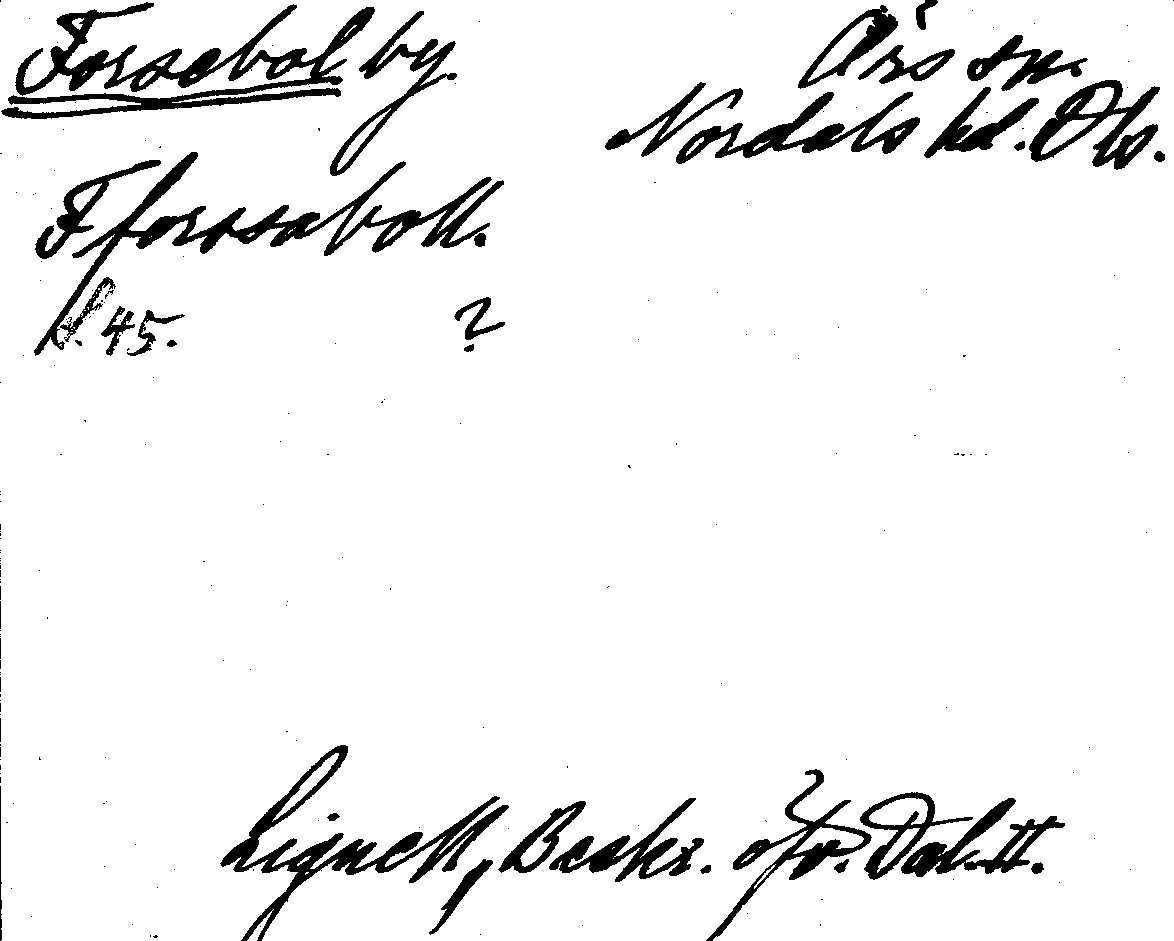 Forsebol by. Ärs sn.
Nordals hd. Dls.
Fforssaboll.
s. 45. ?
Lignell, Beskr. öfv. Dal. II.